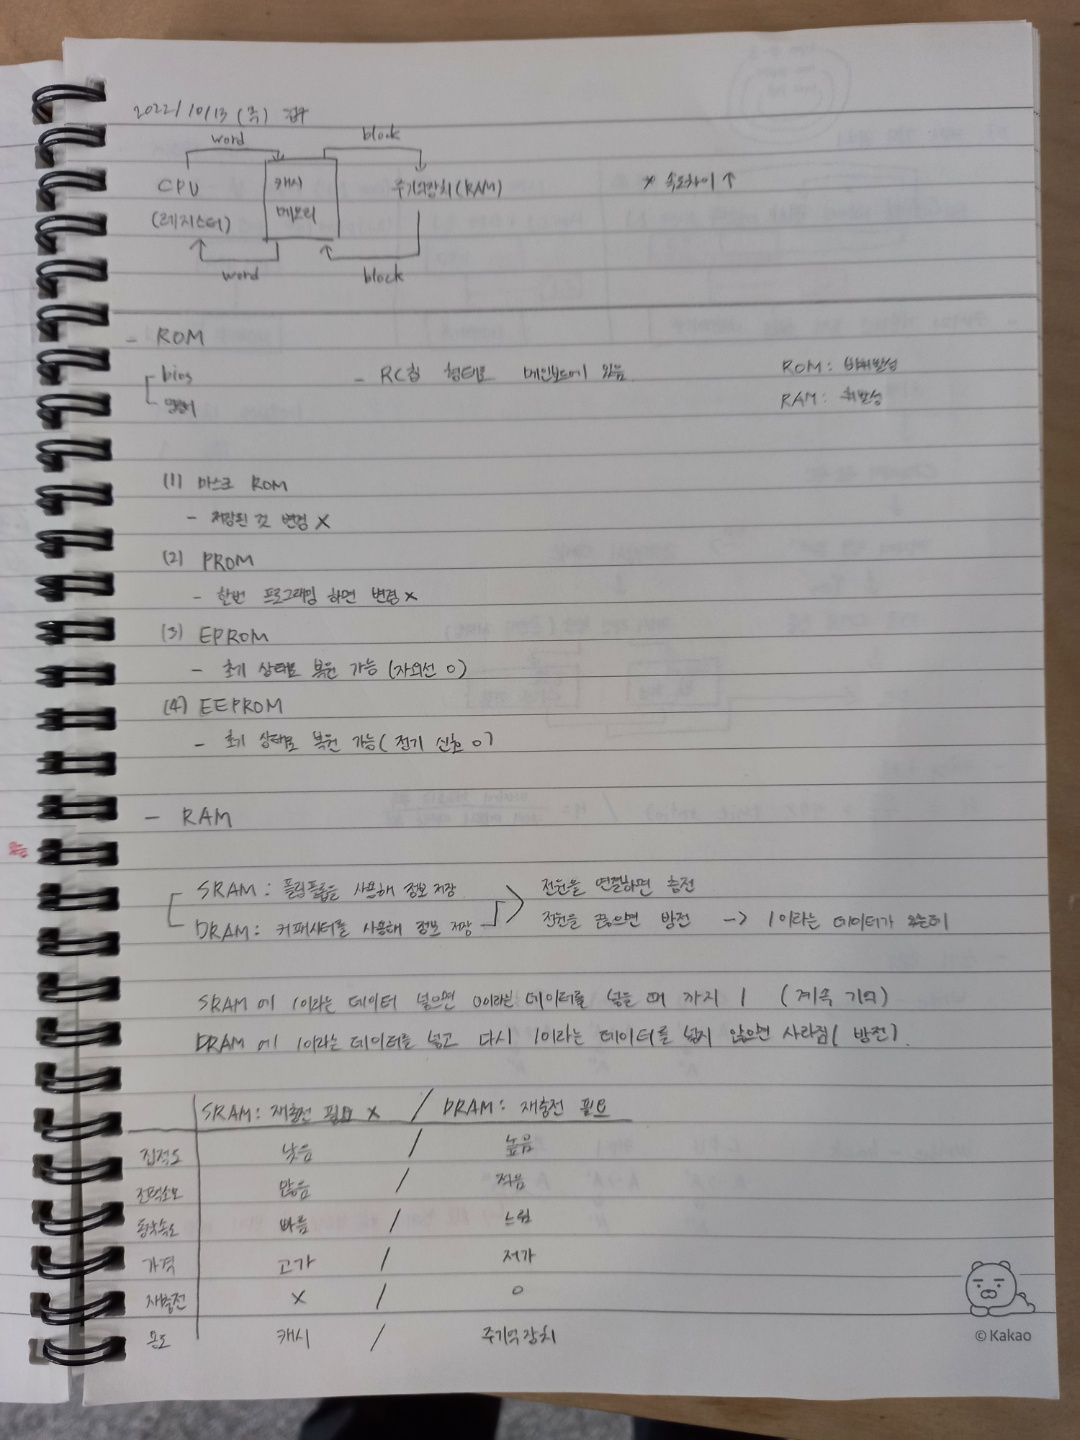 2022/10/13 (목) 컴구
word block
CPU 캐시 주기억장치(RAM) * 속도차이 ↑
(레지스터) 메모리
word block
- ROM
bios - RC칩 형태로 메인보드에 있음 ROM: 비휘발성
RAM: 휘발성
(1) 마스크 ROM
- 저장된 것 변경 X
(2) PROM
- 한번 프로그래밍 하면 변경 X
(3) EPROM
- 초기 상태로 복원 가능 (자외선 O)
(4) EEPROM
- 초기 상태로 복원 가능 ( 전기 신호 O)
- RAM
SRAM : 플립플롭을 사용해 정보 저장 전원을 연결하면 충전
DRAM : 커패시터를 사용해 정보 저장 전원을 끊으면 방전 -> 1이라는 데이터가
SRAM 에 1이라는 데이터 넣으면 0이라는 데이터를 넣을 때 까지 1 ( 계속 기억)
DRAM 에 1이라는 데이터를 넣고 다시 1이라는 데이터를 넣지 않으면 사라짐( 방전).
SRAM : 재충전 필요 X / DRAM : 재충전 필요
집적도 낮음 / 높음
전력소모 많음 / 적음
동작속도 빠름 / 느림
가격 고가 / 저가
재충전 X / O
용도 캐시 / 주기억장치
© Kakao